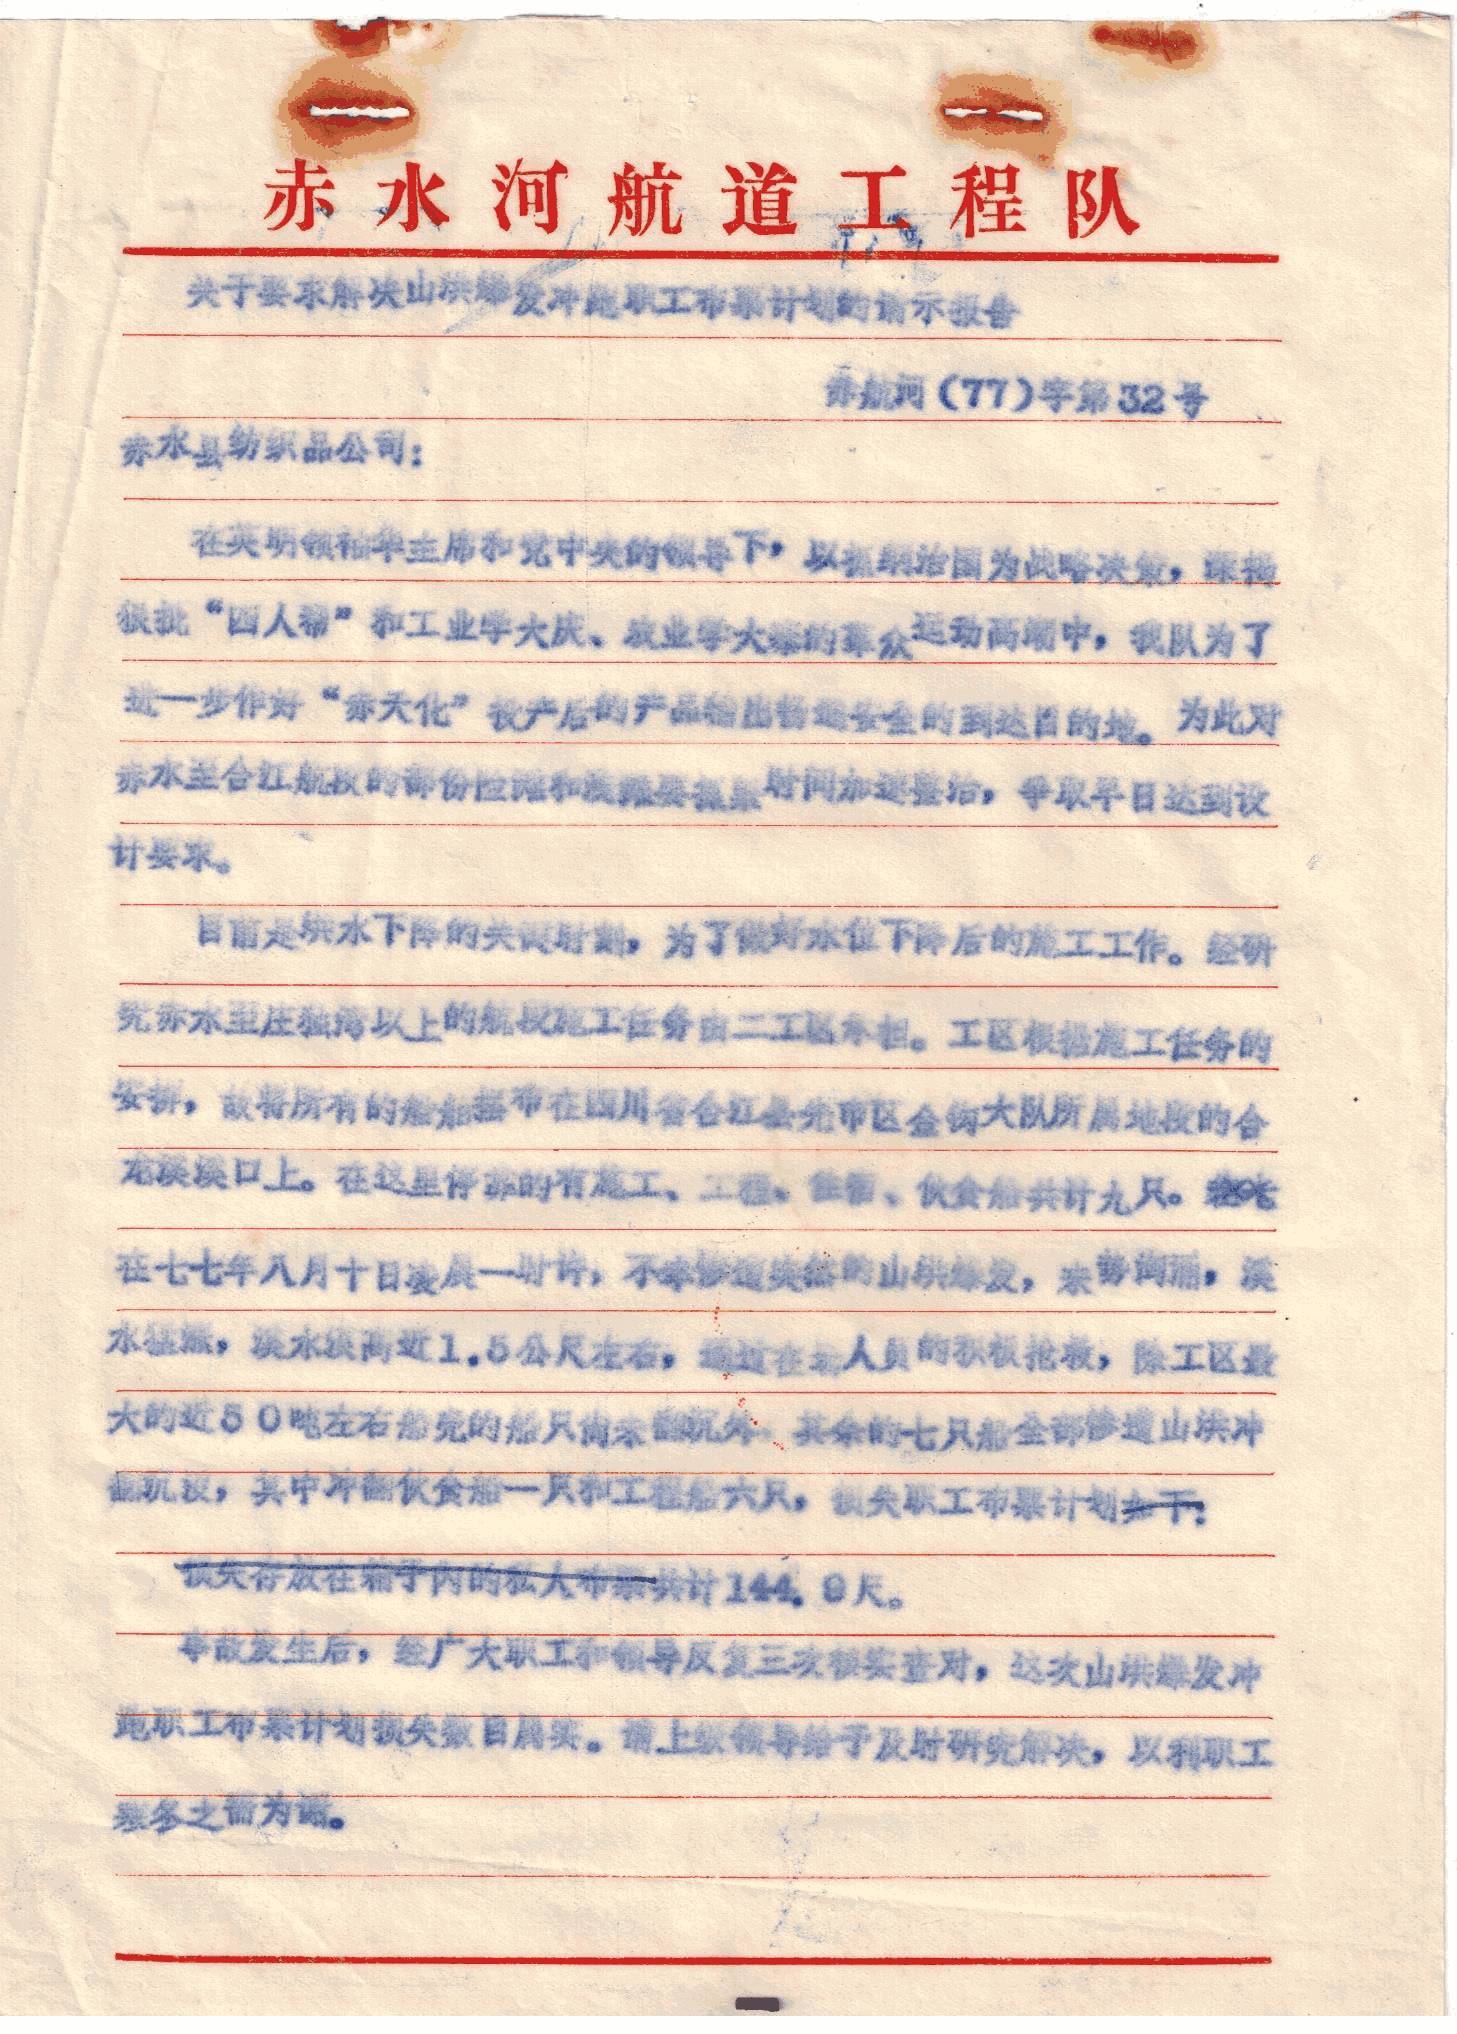 赤水河航道工程队
关于要求解决山洪爆发冲跑职工布票计划的请示报告
赤航河(77)字第32号
赤水县纺织品公司:
在英明领袖华主席和党中央的领导下,以抓纲治国为战略决策,深揭
狠批“四人帮”和工业学大庆、农业学大寨的群众运动高潮中,我队为了
进一步作好“赤天化”投产后的产品输出畅通安全的到达目的地。为此对
赤水至合江航段的部份险滩和浅滩要抓紧时间加速整治,争取早日达到设
计要求。
目前是洪水下降的关键时刻,为了做好水位下降后的施工工作。经研
究赤水至庄独湾以上的航段施工任务由二工区承担。工区根据施工任务的
安排,故将所有的船舶摆布在四川省合江县先市区金钩大队所属地段的合
龙溪溪口上。在这里停靠的有施工、工程、住宿、伙食船共计九只。
在七七年八月十日凌晨一时许,不幸惨遭突然的山洪爆发,来势汹涌,溪
水猛涨,溪水涨高近1.5公尺左右,通过在船人员的积极抢救,除工区最
大的近50吨左右船壳的船只尚未翻沉外,其余的七只船全部惨遭山洪冲
翻沉没,其中冲翻伙食船一只和工程船六只,损失职工布票计划如下:
损失存放在箱子内的私人布票共计144.9尺。
事故发生后,经广大职工和领导反复三次核实查对,这次山洪爆发冲
跑职工布票计划损失数目属实。请上级领导给予及时研究解决,以利职工
寒冬之需为谢。